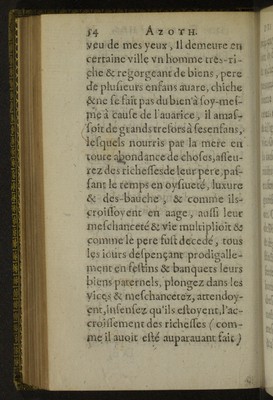 54 AZOTH.
veu de mes yeux, Il demeure en
certaine ville vn homme tres-ri-
che & regorgeant de biens, pere
de plusieurs enfans auare, chiche
& ne se fait pas du bien à soy-mes-
me à cause de l'auarice, il amas-
soit de grands tresors à ses enfans,
lesquels nourris par la mere en
toute abondance de choses, asseu-
rez des richesses de leur pere, pas-
sant le temps en oysiueté, luxure
& des-bauche, & comme ils
croissoyent en aage, aussi leur
meschanceté & vie multiplioit &
comme le pere fust decedé, tous
les iours despençant prodigalle-
ment en festins & banquets leurs
biens paternels, plongez dans les
vices & meschancetez, attendoy-
ent, insensez qu'ils estoyent, l'ac-
croissement des richesses (com-
me il auoit esté auparauant fait)